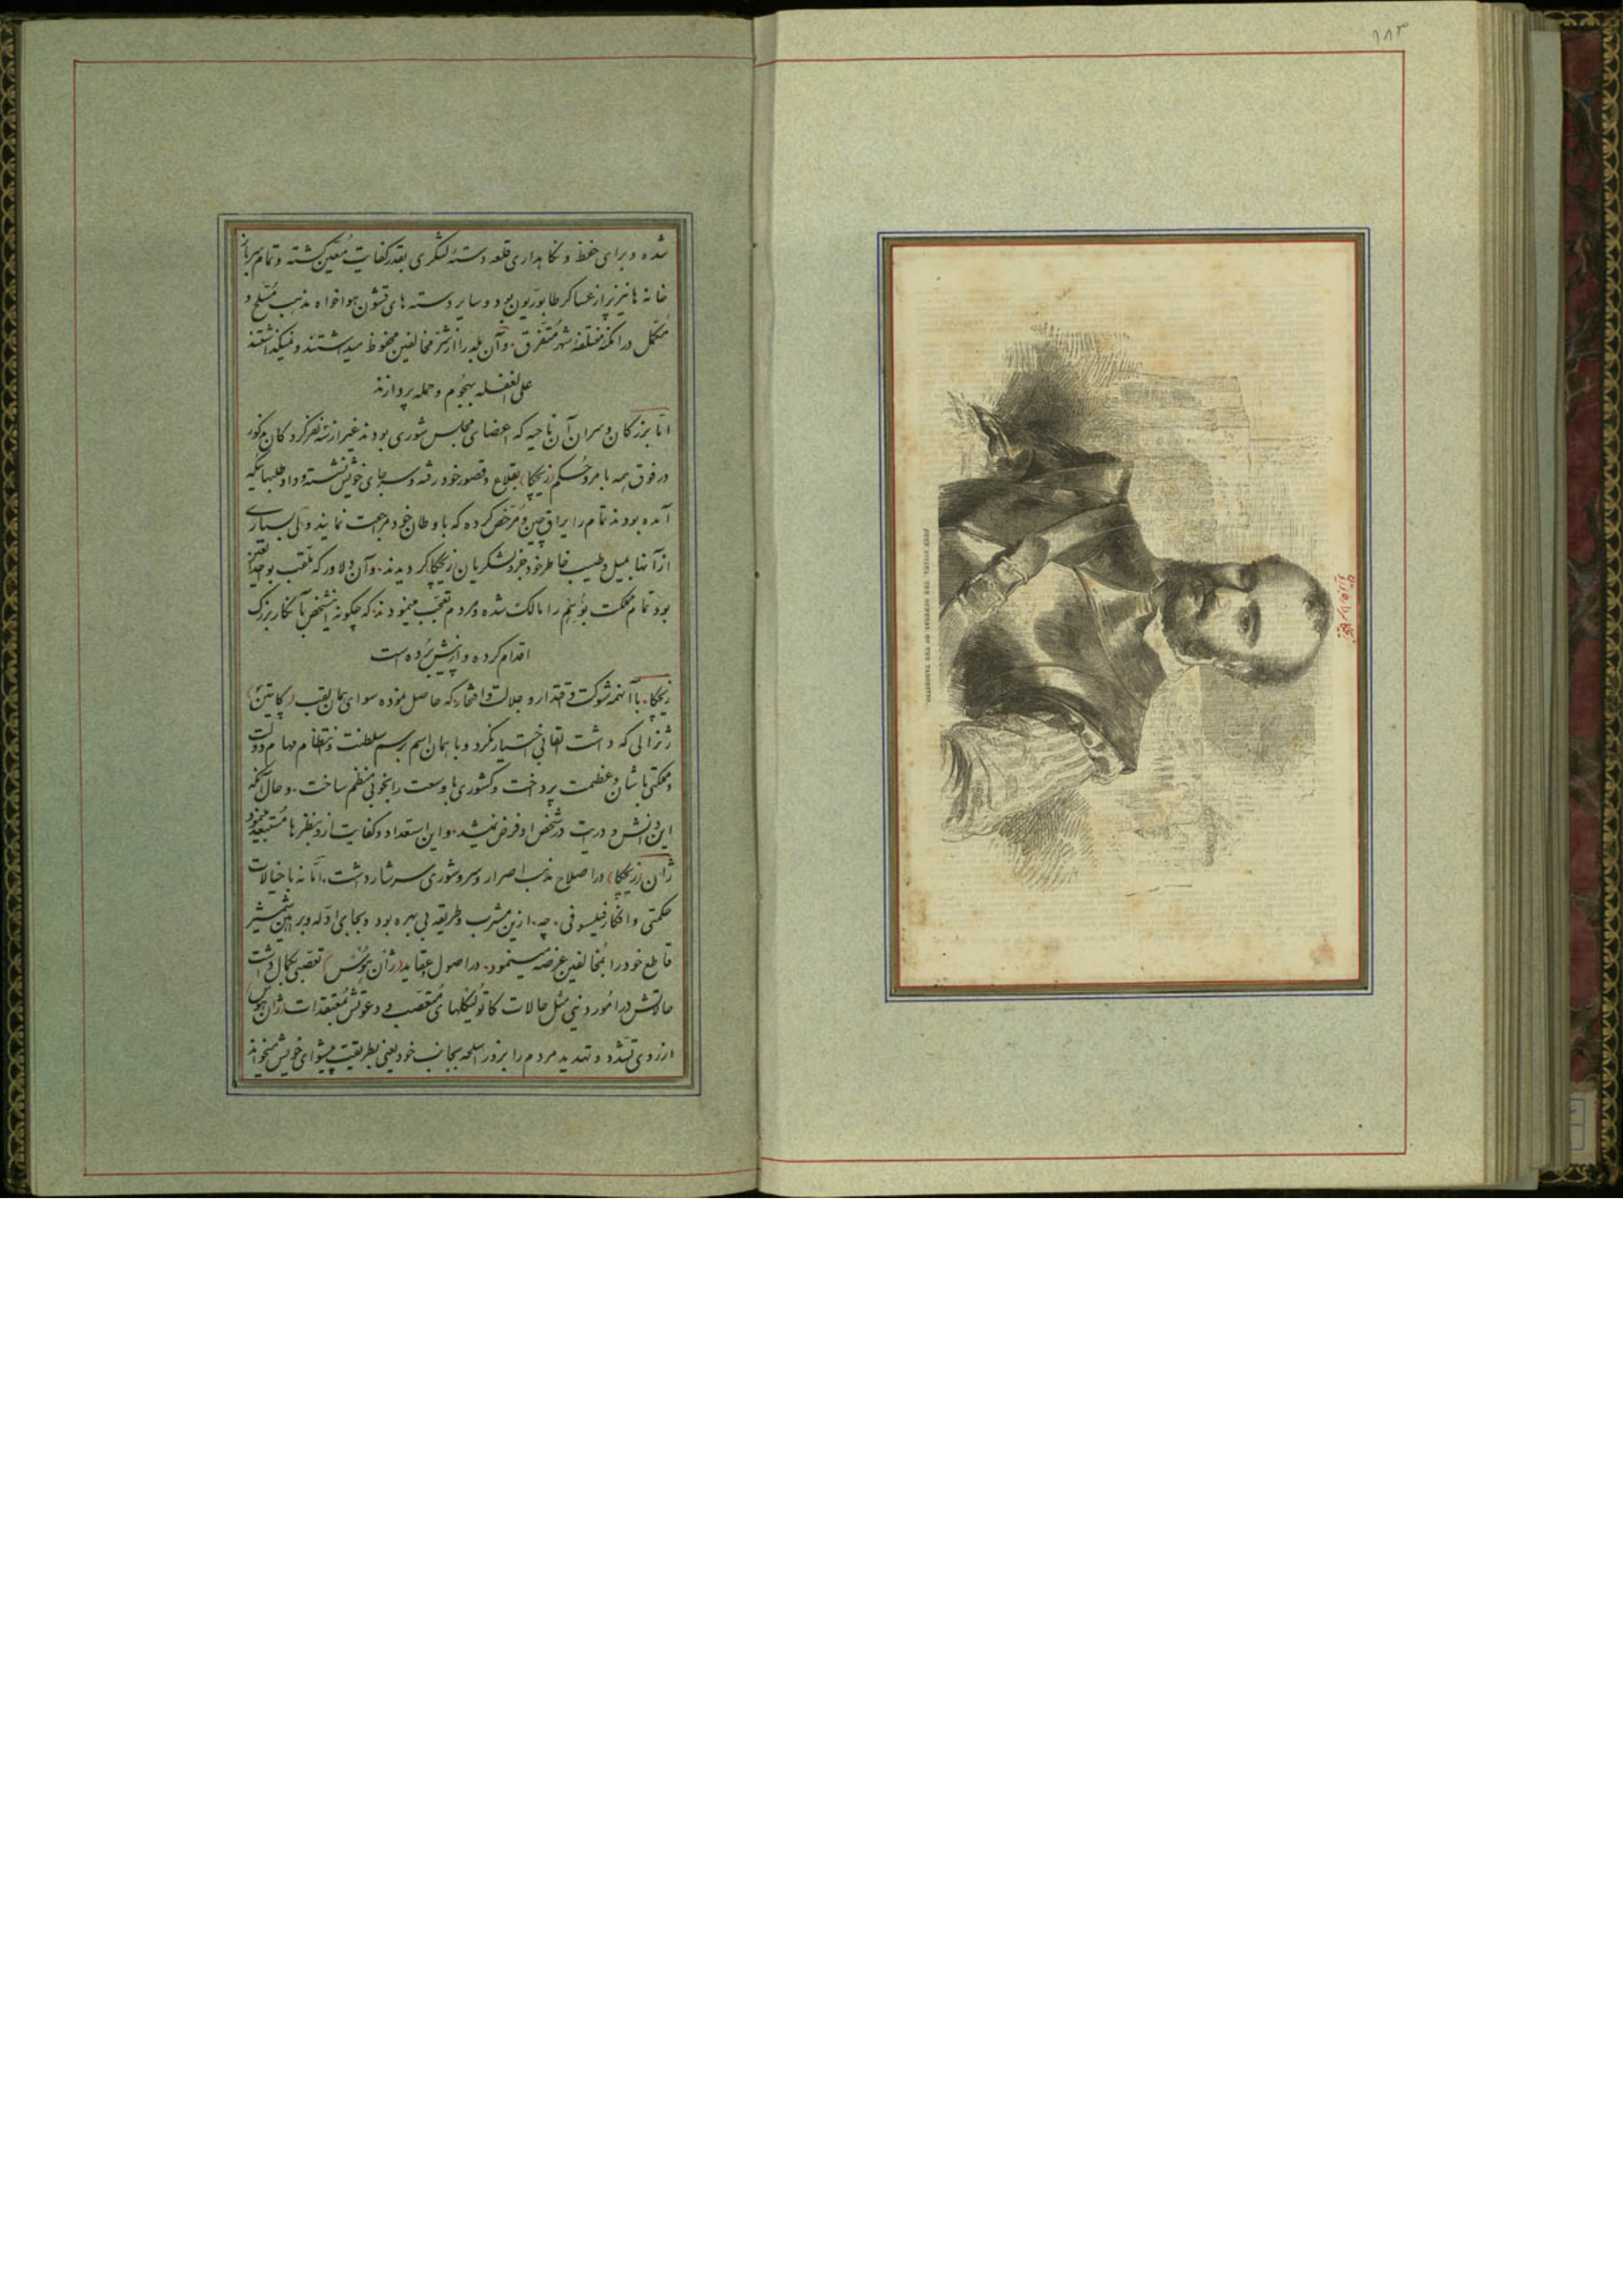 ۱۸۳
شده و برای حفظ و نگاهداری قلعه دستهٔ لشگری بقدر کفایت مُعیّن گشته و تمام سرباز
خانه ها نیز پر از عساکر طابوریون بود و سایر دسته های قشون هواخواه مذهب مُسلّح و
مُکمّل در امکنهٔ مختلفهٔ شهر مُتفرق. و آن بلد را از شرّ مخالفین محفوظ میداشتند و نمیگذاشتند
علی الغفله بهجُوم و حمله پردازند
امّا بزرکان و سران آن ناحیه که اعضای مجلس شوری بودند غیر از سه نفر کردکان مذکور
در فوق همه بامر و حُکم (زیچکا) بقلاع و قصور خود رفته و سر جای خویش نشسته و داوطلبهائیکه
آمده بودند تمام را یراق چین و مُرخّص کرده که باوطان خود مراجعت نمایند ولی بسیاری
از آنها بمیل و طیب خاطر خود جزو لشکریان زیچکا کردیدند. و آن دلاور که مُلقب بوحیدالعین
بود تمام مملکت بوُهِم را مالک شده و مردم تعجّب مینمودند. که چکونه اینشخص بآنکار بزرک
اقدام کرده و از پیش بُرده است
زیچکا. با آنهمه شوکت و اقتدار و جلالت و افتخار که حاصل نموده سوای همان لقب (کاپیتن)
ژنرالی که داشت القابی اختیار نکرد و با همان اسم برسم سلطنت و انتظام مهام دولت
و مملکتی باشان و عظمت پرداخت و کشوری با وسعت را بخوبی منظم ساخت. و حال آنکه
این دانش و درایت در شخص او فرض نمیشد. و این استعداد و کفایت از او بنظرها مُستبعد مینمود
ژان (زیچکا) در اصلاح مذهب اصرار و سر و شوری سرشار داشت. امّا نه با خیالات
حکمتی و افکار فیلسوفی. چه. ازین مشرب و طریقه بی بهره بود و بجای ادّله و براهین شمشیر
قاطع خود را بُمخالفین عرضه مینمود. در اصول و عقاید (ژان هوُس) تعصّبی بکمال داشت
حالاتش در امُور دینی مثل حالات کاتولیکهای مُتعصّب و دعوتش مُعتقدات (ژان هوس)
از روی تشدّد و تهدید مردم را بزور اسلحه بجانب خود یعنی بطریقت پیشوای خویش میخواند